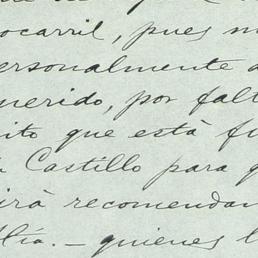 ocarril, pues m
ersonalmente a
uerido, por falt
ito que está fu
Castillo para q
irà recomendan
Mía. — quienes l